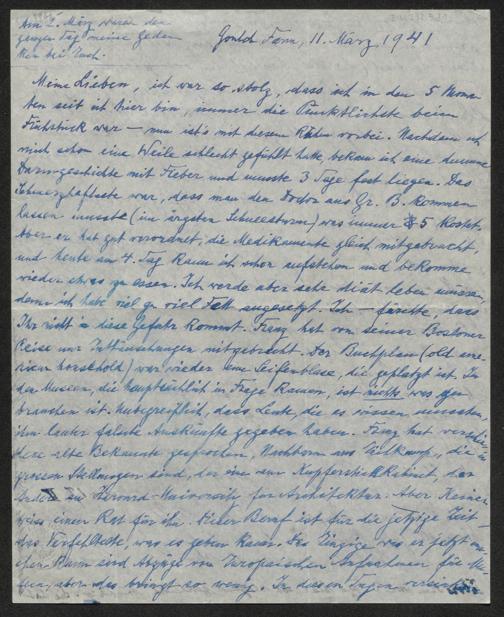 Am 2. März waren den
ganzen Tag meine Gedan
ken bei Euch.
Gould Farm, 11. März 1941
Meine Lieben, ich war so stolz, dass ich in den 5 Mona
ten seit ich hier bin, immer die Pünktlichste beim
Frühstück war – nun ist's mit diesem Ruhm vorbei. Nachdem ich
mich schon eine Weile schlecht gefühlt hatte, bekam ich eine dumme
Darmgeschichte mit Fieber und musste 3 Tage fest liegen. Das
Schmerzhafteste war, dass man den Doctor aus Gr. B. kommen
lassen musste (im ärgsten Schneesturm) was immer $ 5 kostet.
Aber er hat gut verordnet, die Medikamente gleich mitgebracht,
und heute am 4. Tag kann ich schon aufstehen und bekomme
wieder etwas zu essen. Ich werde aber sehr diät leben müssen,
denn ich habe viel zu viel Fett angesetzt. Ich fürchte, dass
Ihr nicht in diese Gefahr kommt. Franz hat von seiner Bostoner
Reise nur Enttäuschungen mitgebracht. Der Buchplan (old ame-
rican household) war wieder eine Seifenblase, die geplatzt ist. In
den Museen, die hauptsächlich in Frage kamen, ist nichts was zu
brauchen ist. Unbegreiflich, dass Leute, die es wissen mussten,
ihm lauter falsche Auskünfte gegeben haben. Franz hat verschie
dene alte Bekannte gesprochen, die in
grossen Stellungen sind, der eine am Kupferstichkabinet, der
andere an Harvard-University für Architektur. Aber keiner
wusste einen Rat für ihn. Sein Beruf ist für die jetzige Zeit
das Verfehlteste, was es geben kann. Das Einzige was er jetzt
kann sind Abzüge von Europäischen Aufnahmen für Mu-
seen, aber das bringt so wenig. In diesen Tagen